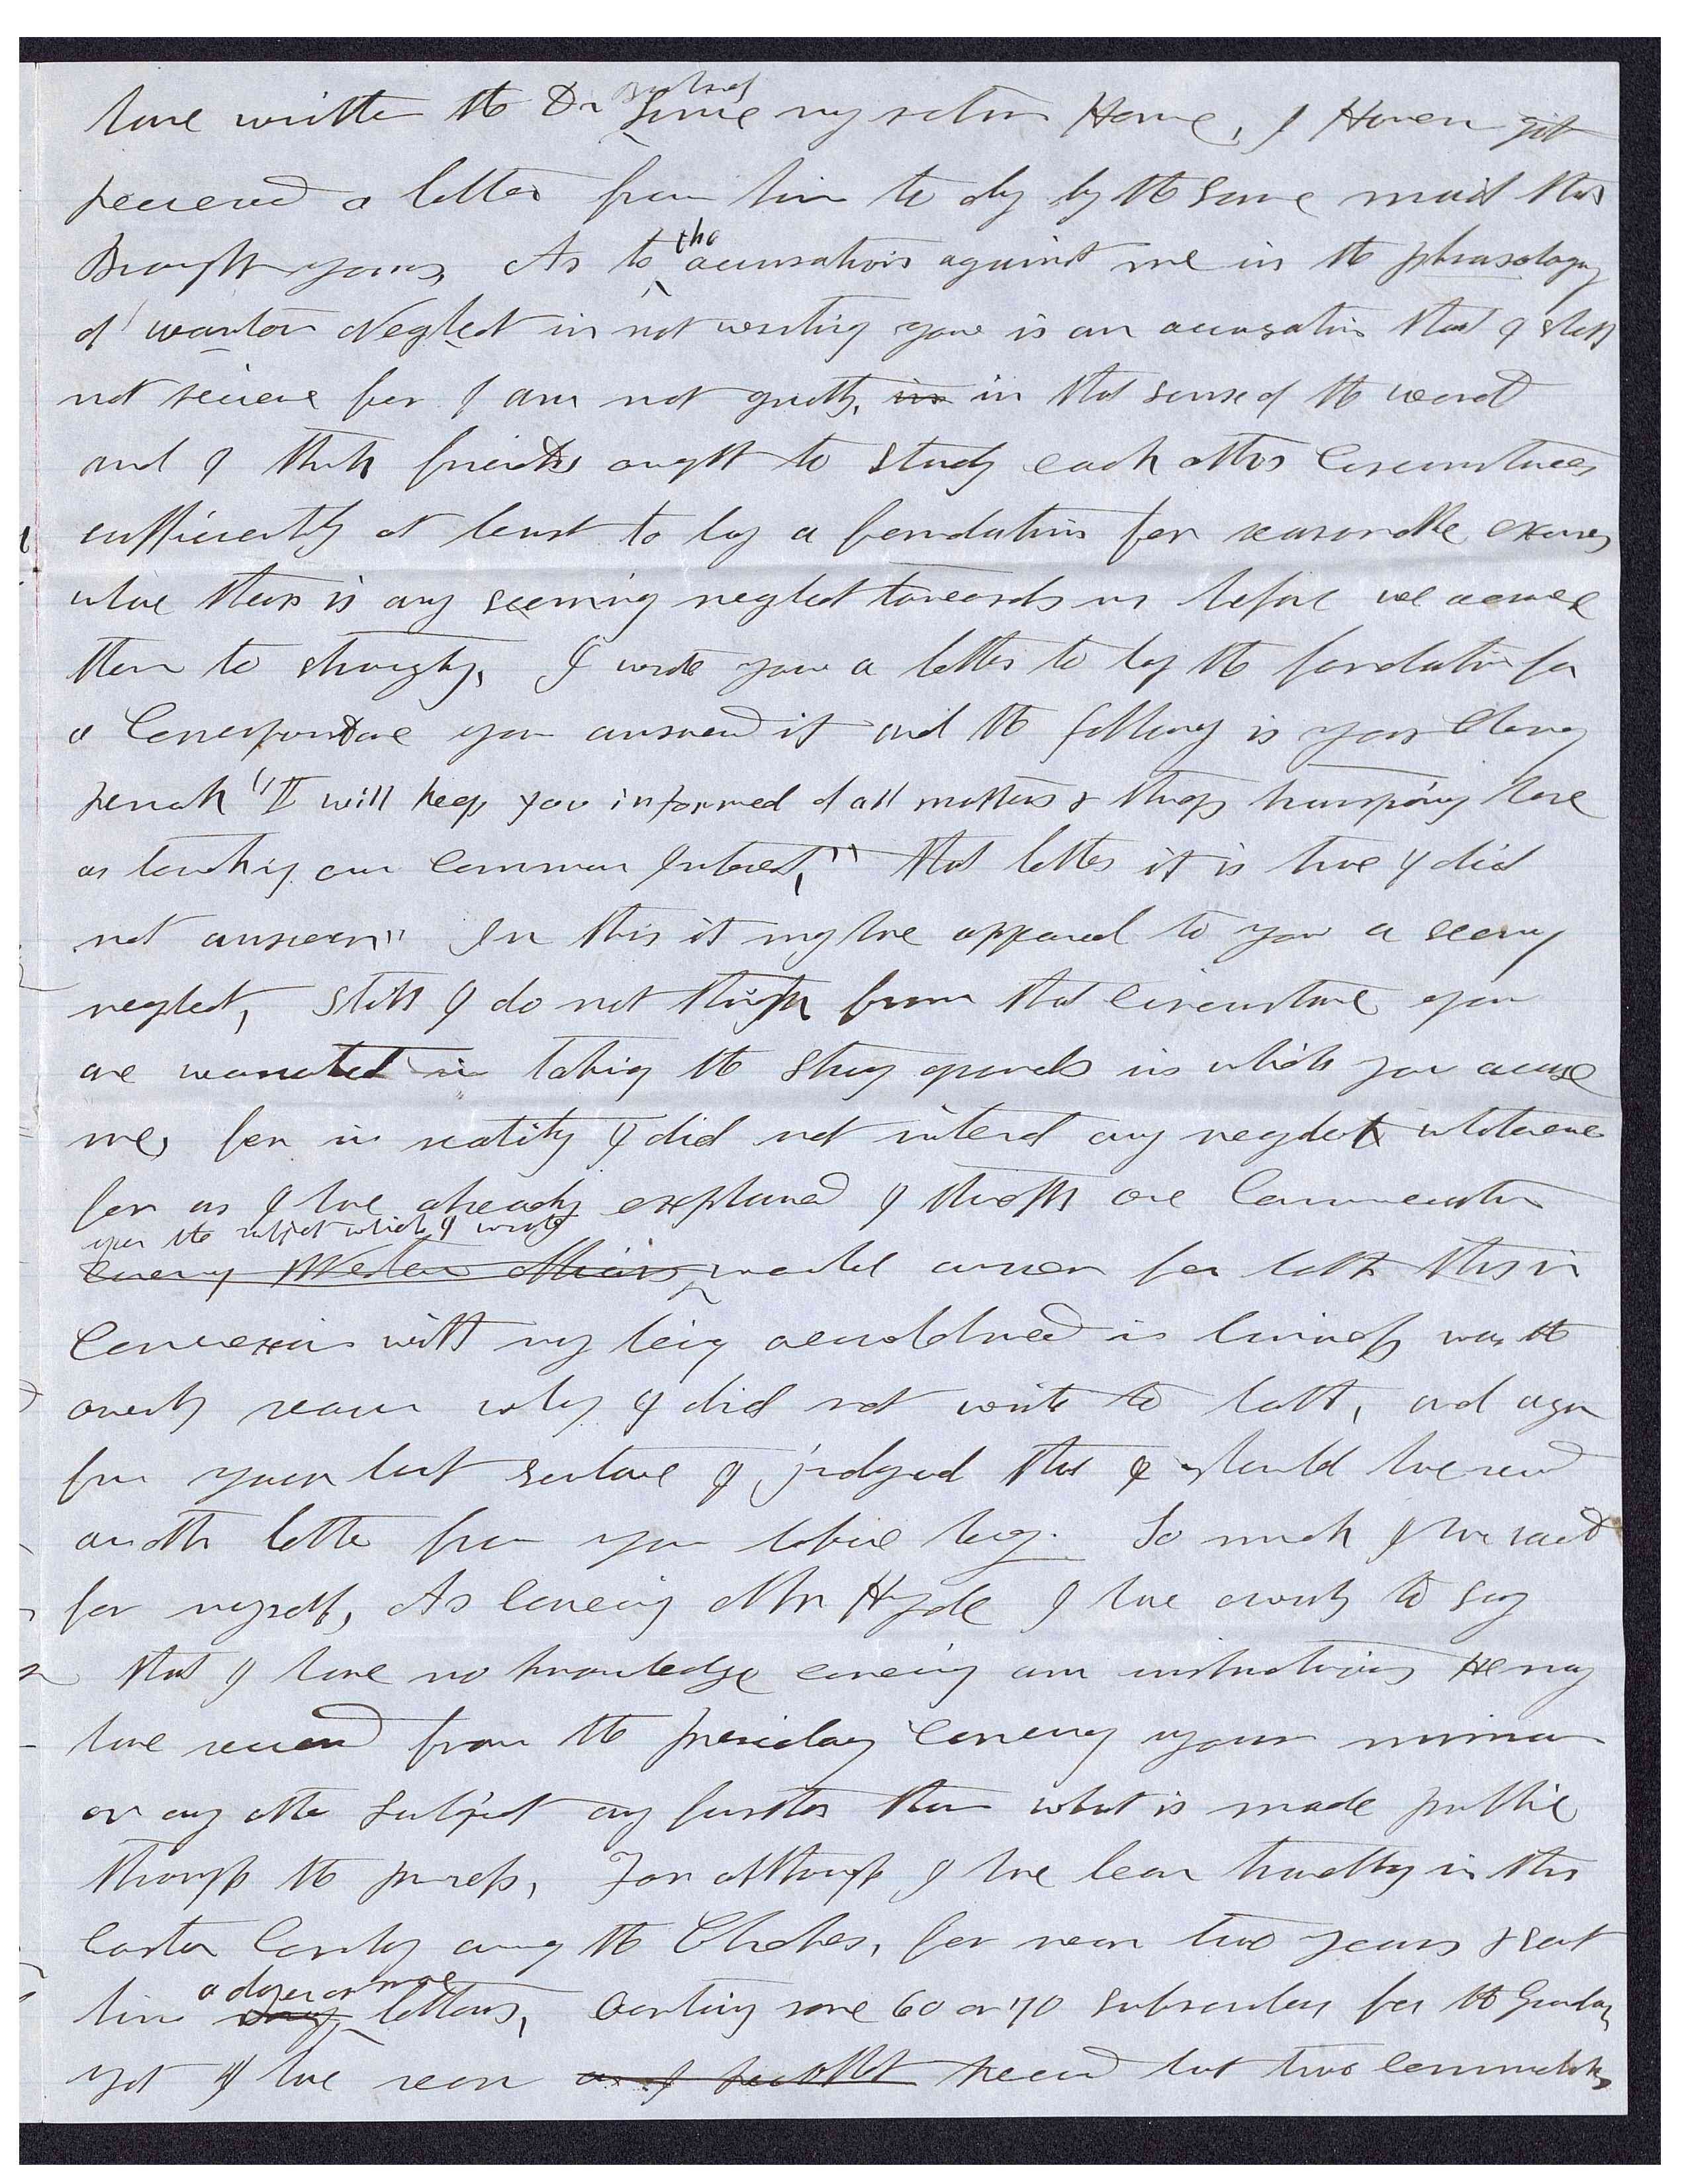 have written to the Dr since my return Home, I Have got
received a letter from him to day by the same mail that
Brought yours, As to the accusations against me in the phrasology
of wanton Neglect in not writing you is an accusation that I shall
not receive for I am not guilty, in in that sense of the word
and I think friends ought to study each others Circumstances
sufficiently at least to lay a foundation for reasonable excuses
where there is any seeming neglect towards us before we accuse
them to strongly, I wrote you a letter to lay the foundation for
a Correspondence you answered it and the following is your Closing
remark "I will keep you informed of all matters & things transpiring here
as touching our Common Interest," that letter it is true I did
not answer" In this it may have appeared to you a seeming
neglect, still I do not think from that Circumstance you
are warranted in taking the strong grounds in which you accuse
me, for in reality I did not intend any neglect whatever
for as I have already explained I thought one Communication
upon the subject which I wrote
Western affairs would answer for both this in
Connexion with my being in business was the
ownly reason why I did not write to both, and again
from your last sentence I judged that I should have received
another letter from you before long. So much I have said
for myself, As concerning Mr Hyde I have ownly to say
that I have no knowledge concerning any instructions He may
have received from the presidency Concerning your mission
or any other subject any further than what is made public
through the press, For although I have been travelling in this
Eastern Country among the Churches, for near two years & sent
him a dozen or more letters, Containing some 60 or 70 subscribers for the Guardian
yet I have received but two Communications